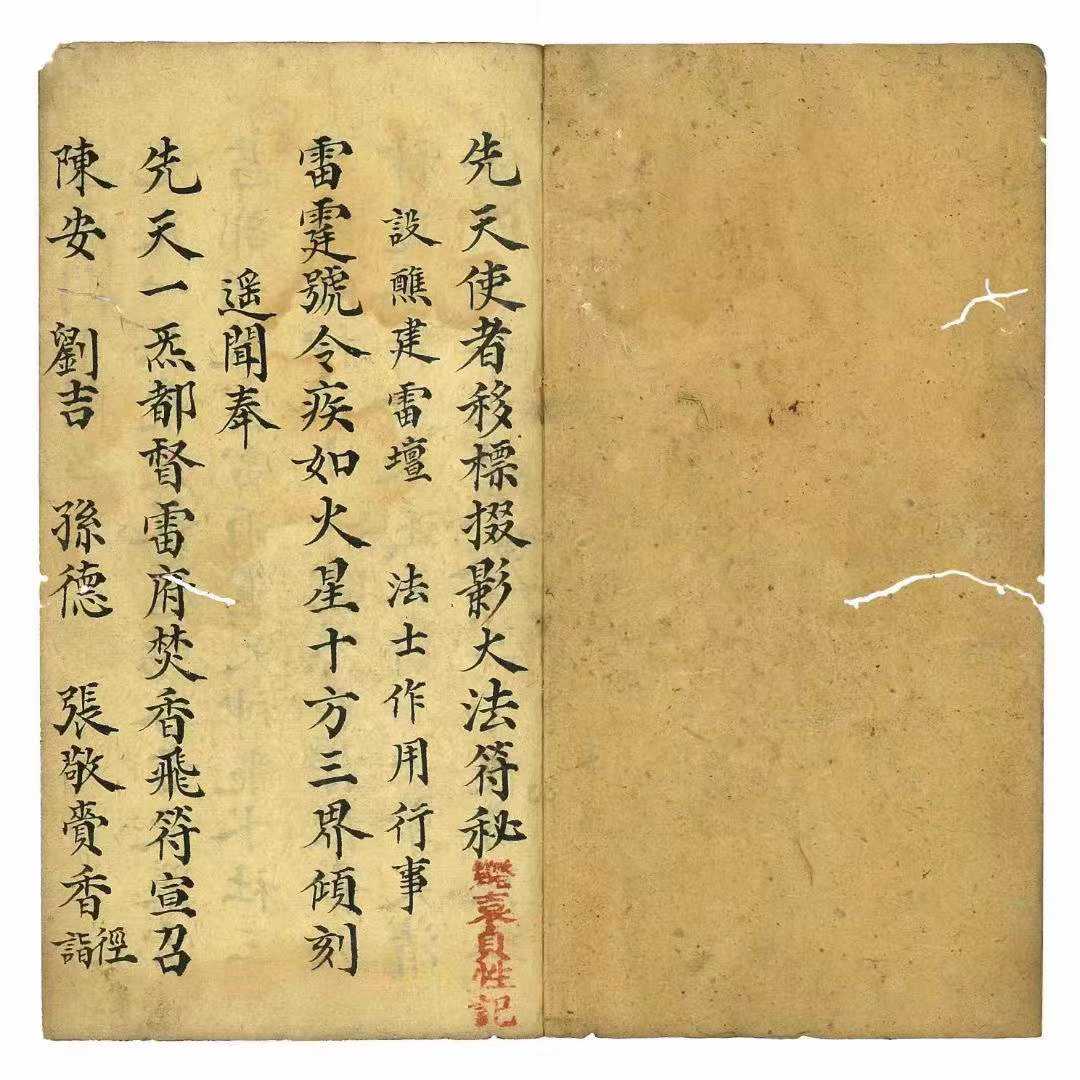 先天使者移標掇影大法符秘
袁貞性記
設醮建雷壇 法士作用行事
雷霆號令疾如火星十方三界傾刻
遥聞奉
先天一炁都督雷府焚香飛符宣召
陳安 劉吉 孫德 張敬賫香徑詣